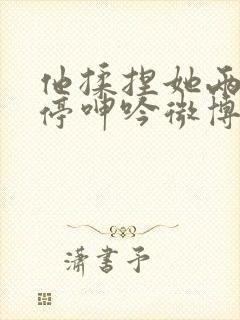 他揉捏她两
停呻吟微博
潇書予